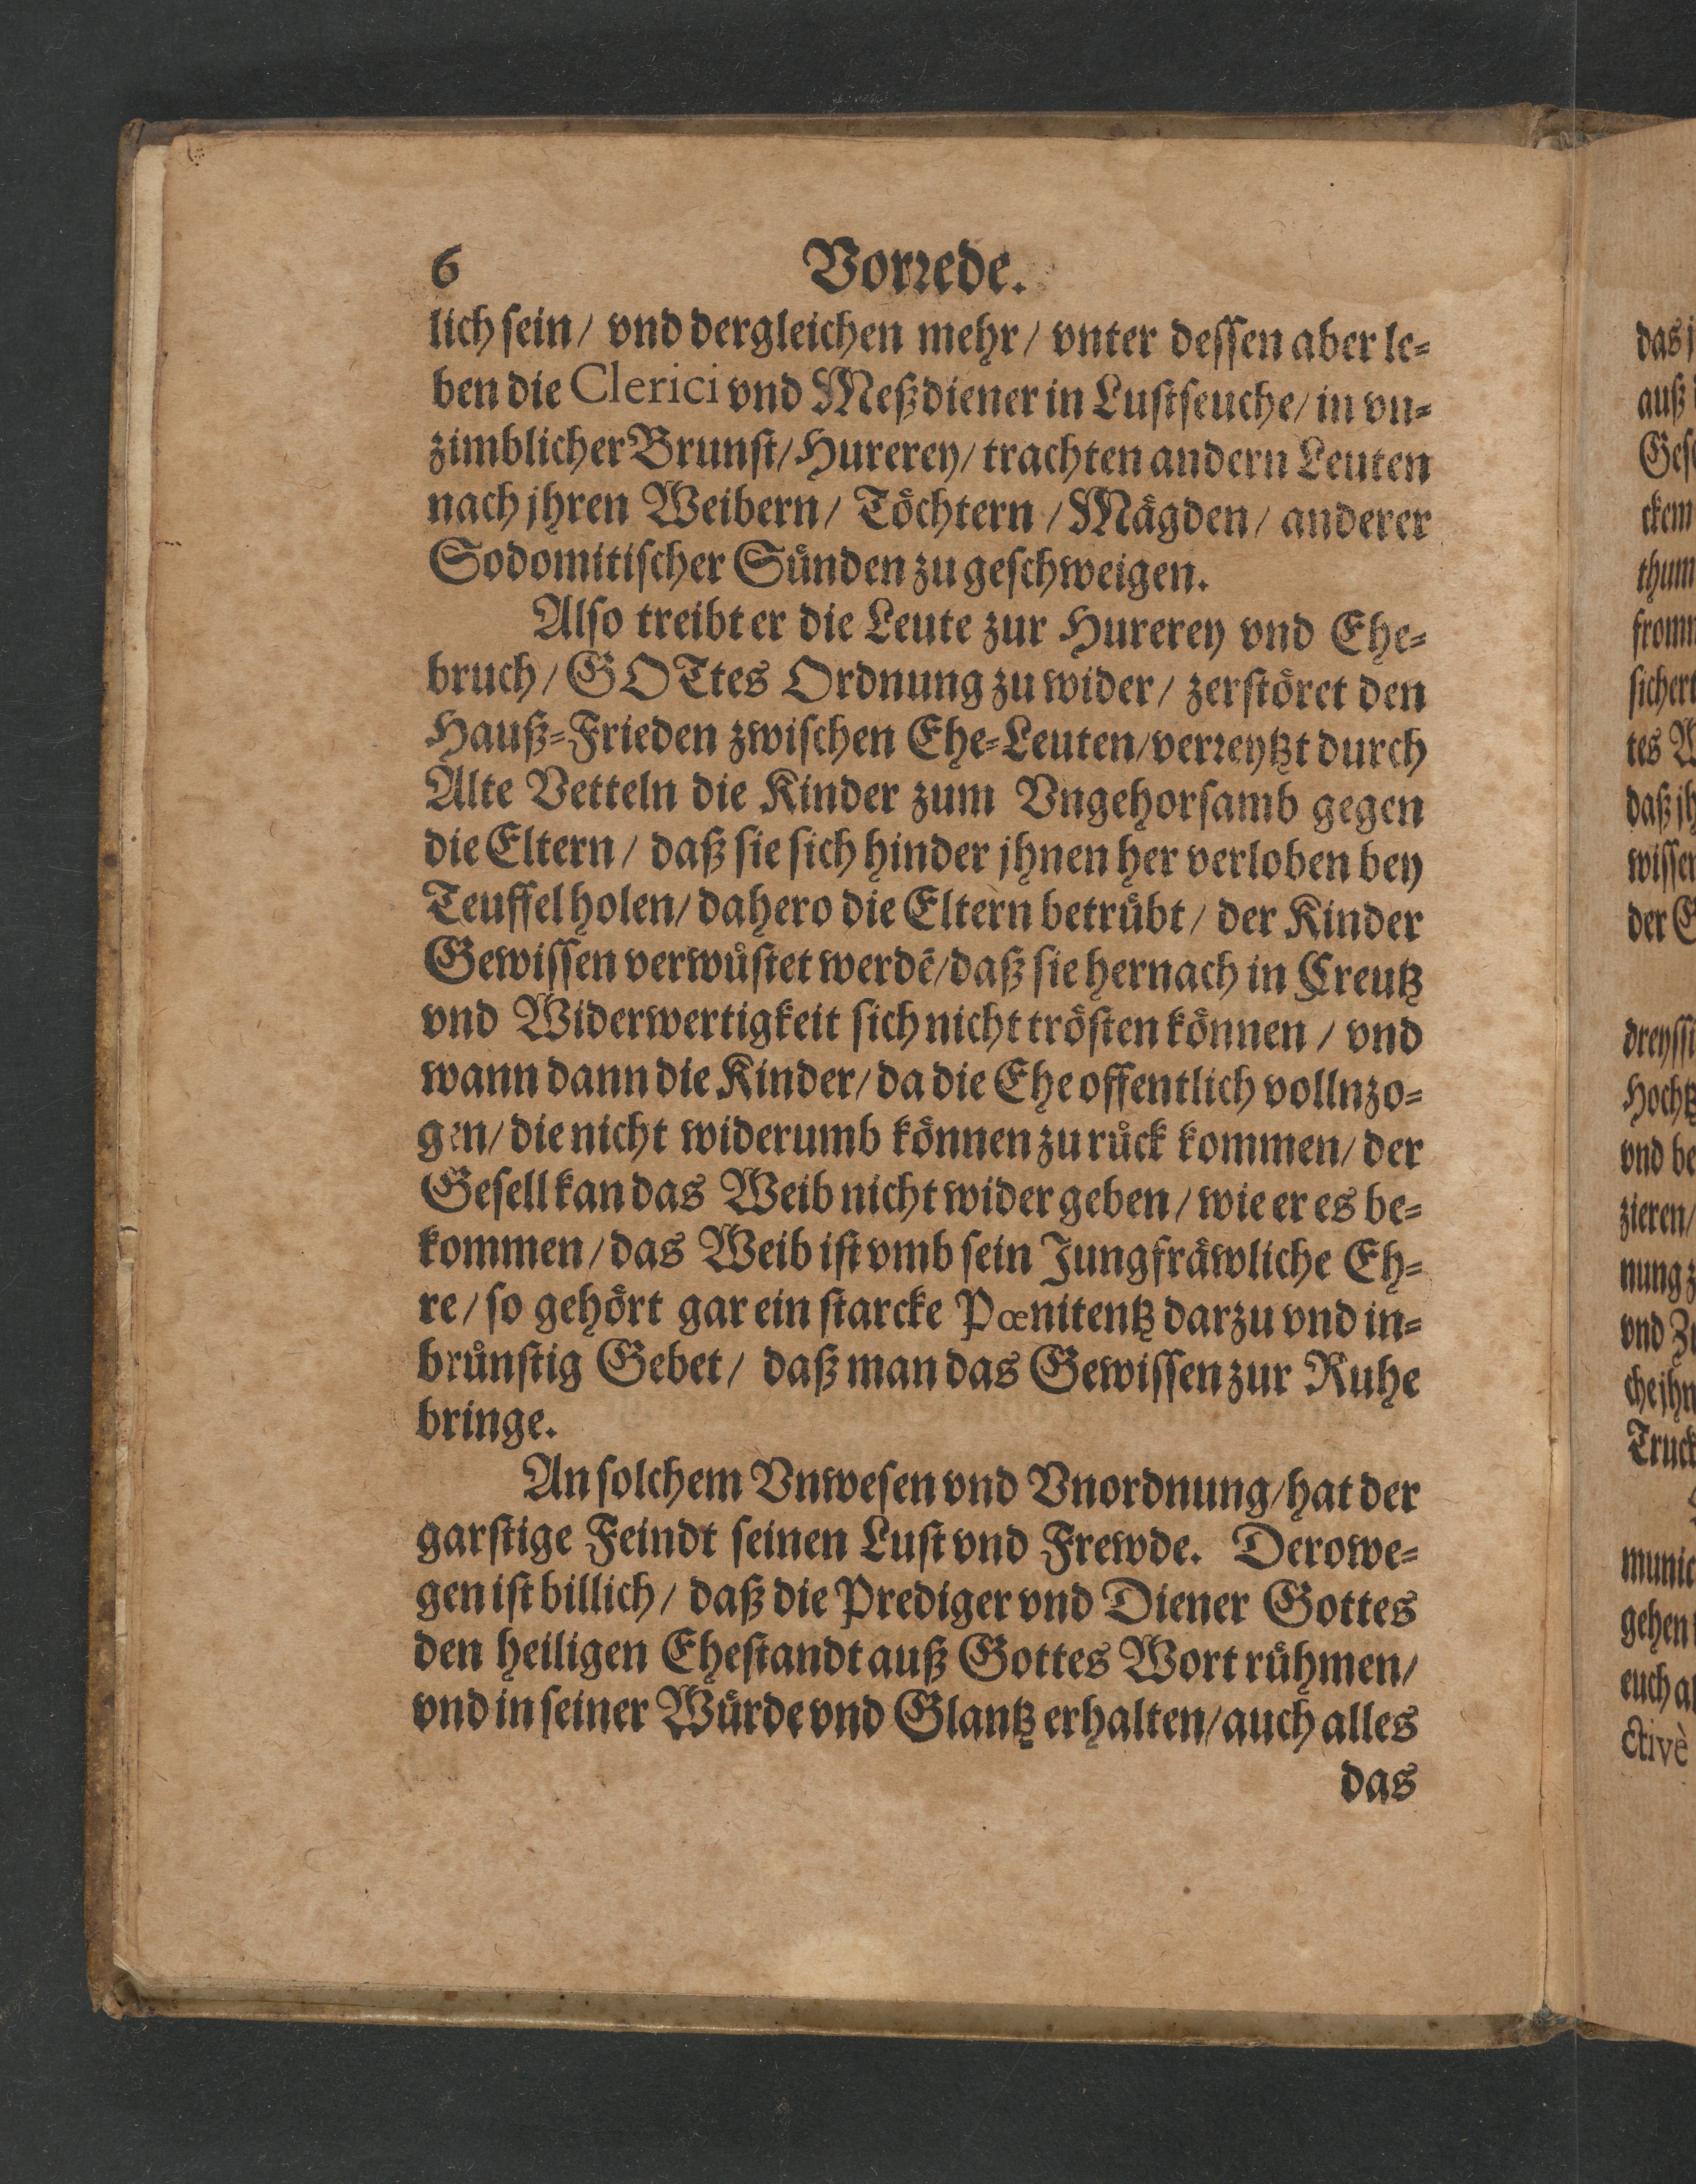 6 Vorrede.
lich sein/ vnd dergleichen mehr/ vnter dessen aber le-
ben die Clerici vnd Meßdiener in Lustseuche/ in vn-
zimblicher Brunst/ Hurerey/ trachten andern Leuten
nach jhren Weibern/ Töchtern/ Mägden/ anderer
Sodomitischer Sünden zu geschweigen.
Also treibt er die Leute zur Hurerey vnd Ehe-
bruch/ GOTtes Ordnung zu wider/ zerstöret den
Hauß-Frieden zwischen Ehe-Leuten/ verreytzt durch
Alte Vetteln die Kinder zum Vngehorsamb gegen
die Eltern/ daß sie sich hinder jhnen her verloben bey
Teuffel holen/ dahero die Eltern betrübt/ der Kinder
Gewissen verwüstet werdē/ daß sie hernach in Creutz
vnd Widerwertigkeit sich nicht trösten können/ vnd
wann dann die Kinder/ da die Ehe offentlich vollnzo-
gen/ die nicht widerumb können zu rück kommen/ der
Gesell kan das Weib nicht wider geben/ wie er es be-
kommen/ das Weib ist vmb sein Jungfräwliche Eh-
re/ so gehört gar ein starcke Pœnitentz darzu vnd in-
brünstig Gebet/ daß man das Gewissen zur Ruhe
bringe.
An solchem Vnwesen vnd Vnordnung/ hat der
garstige Feindt seinen Lust vnd Frewde. Derowe-
gen ist billich/ daß die Prediger vnd Diener Gottes
den heiligen Ehestandt auß Gottes Wort rühmen/
vnd in seiner Würde vnd Glantz erhalten/ auch alles
das